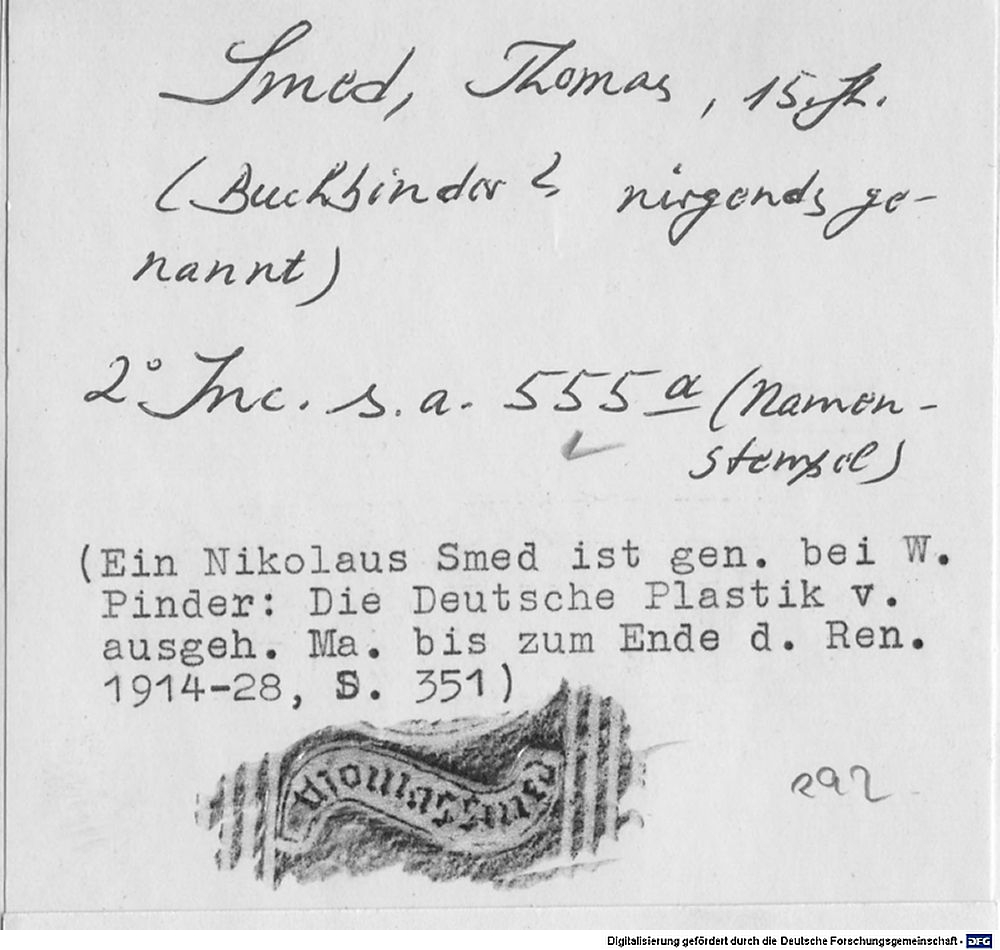 Smed, Thomas, 15. Jh.
(Buchbinder? nirgends ge-
nannt)
2° Inc. s. a. 555a (Namen-
stempel)
(Ein Nikolaus Smed ist gen. bei W.
Pinder: Die Deutsche Plastik v.
ausgeh. Ma. bis zum Ende d. Ren.
1914-28, S. 351)
292
Digitalisierung gefördert durch die Deutsche Forschungsgemeinschaft - DFG